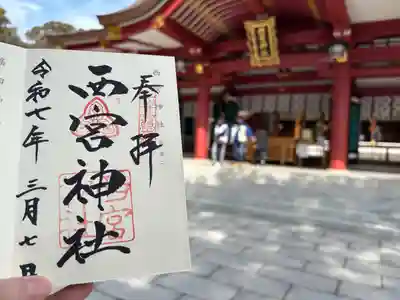 奉拝
西宮神社
令和七年 三月七日